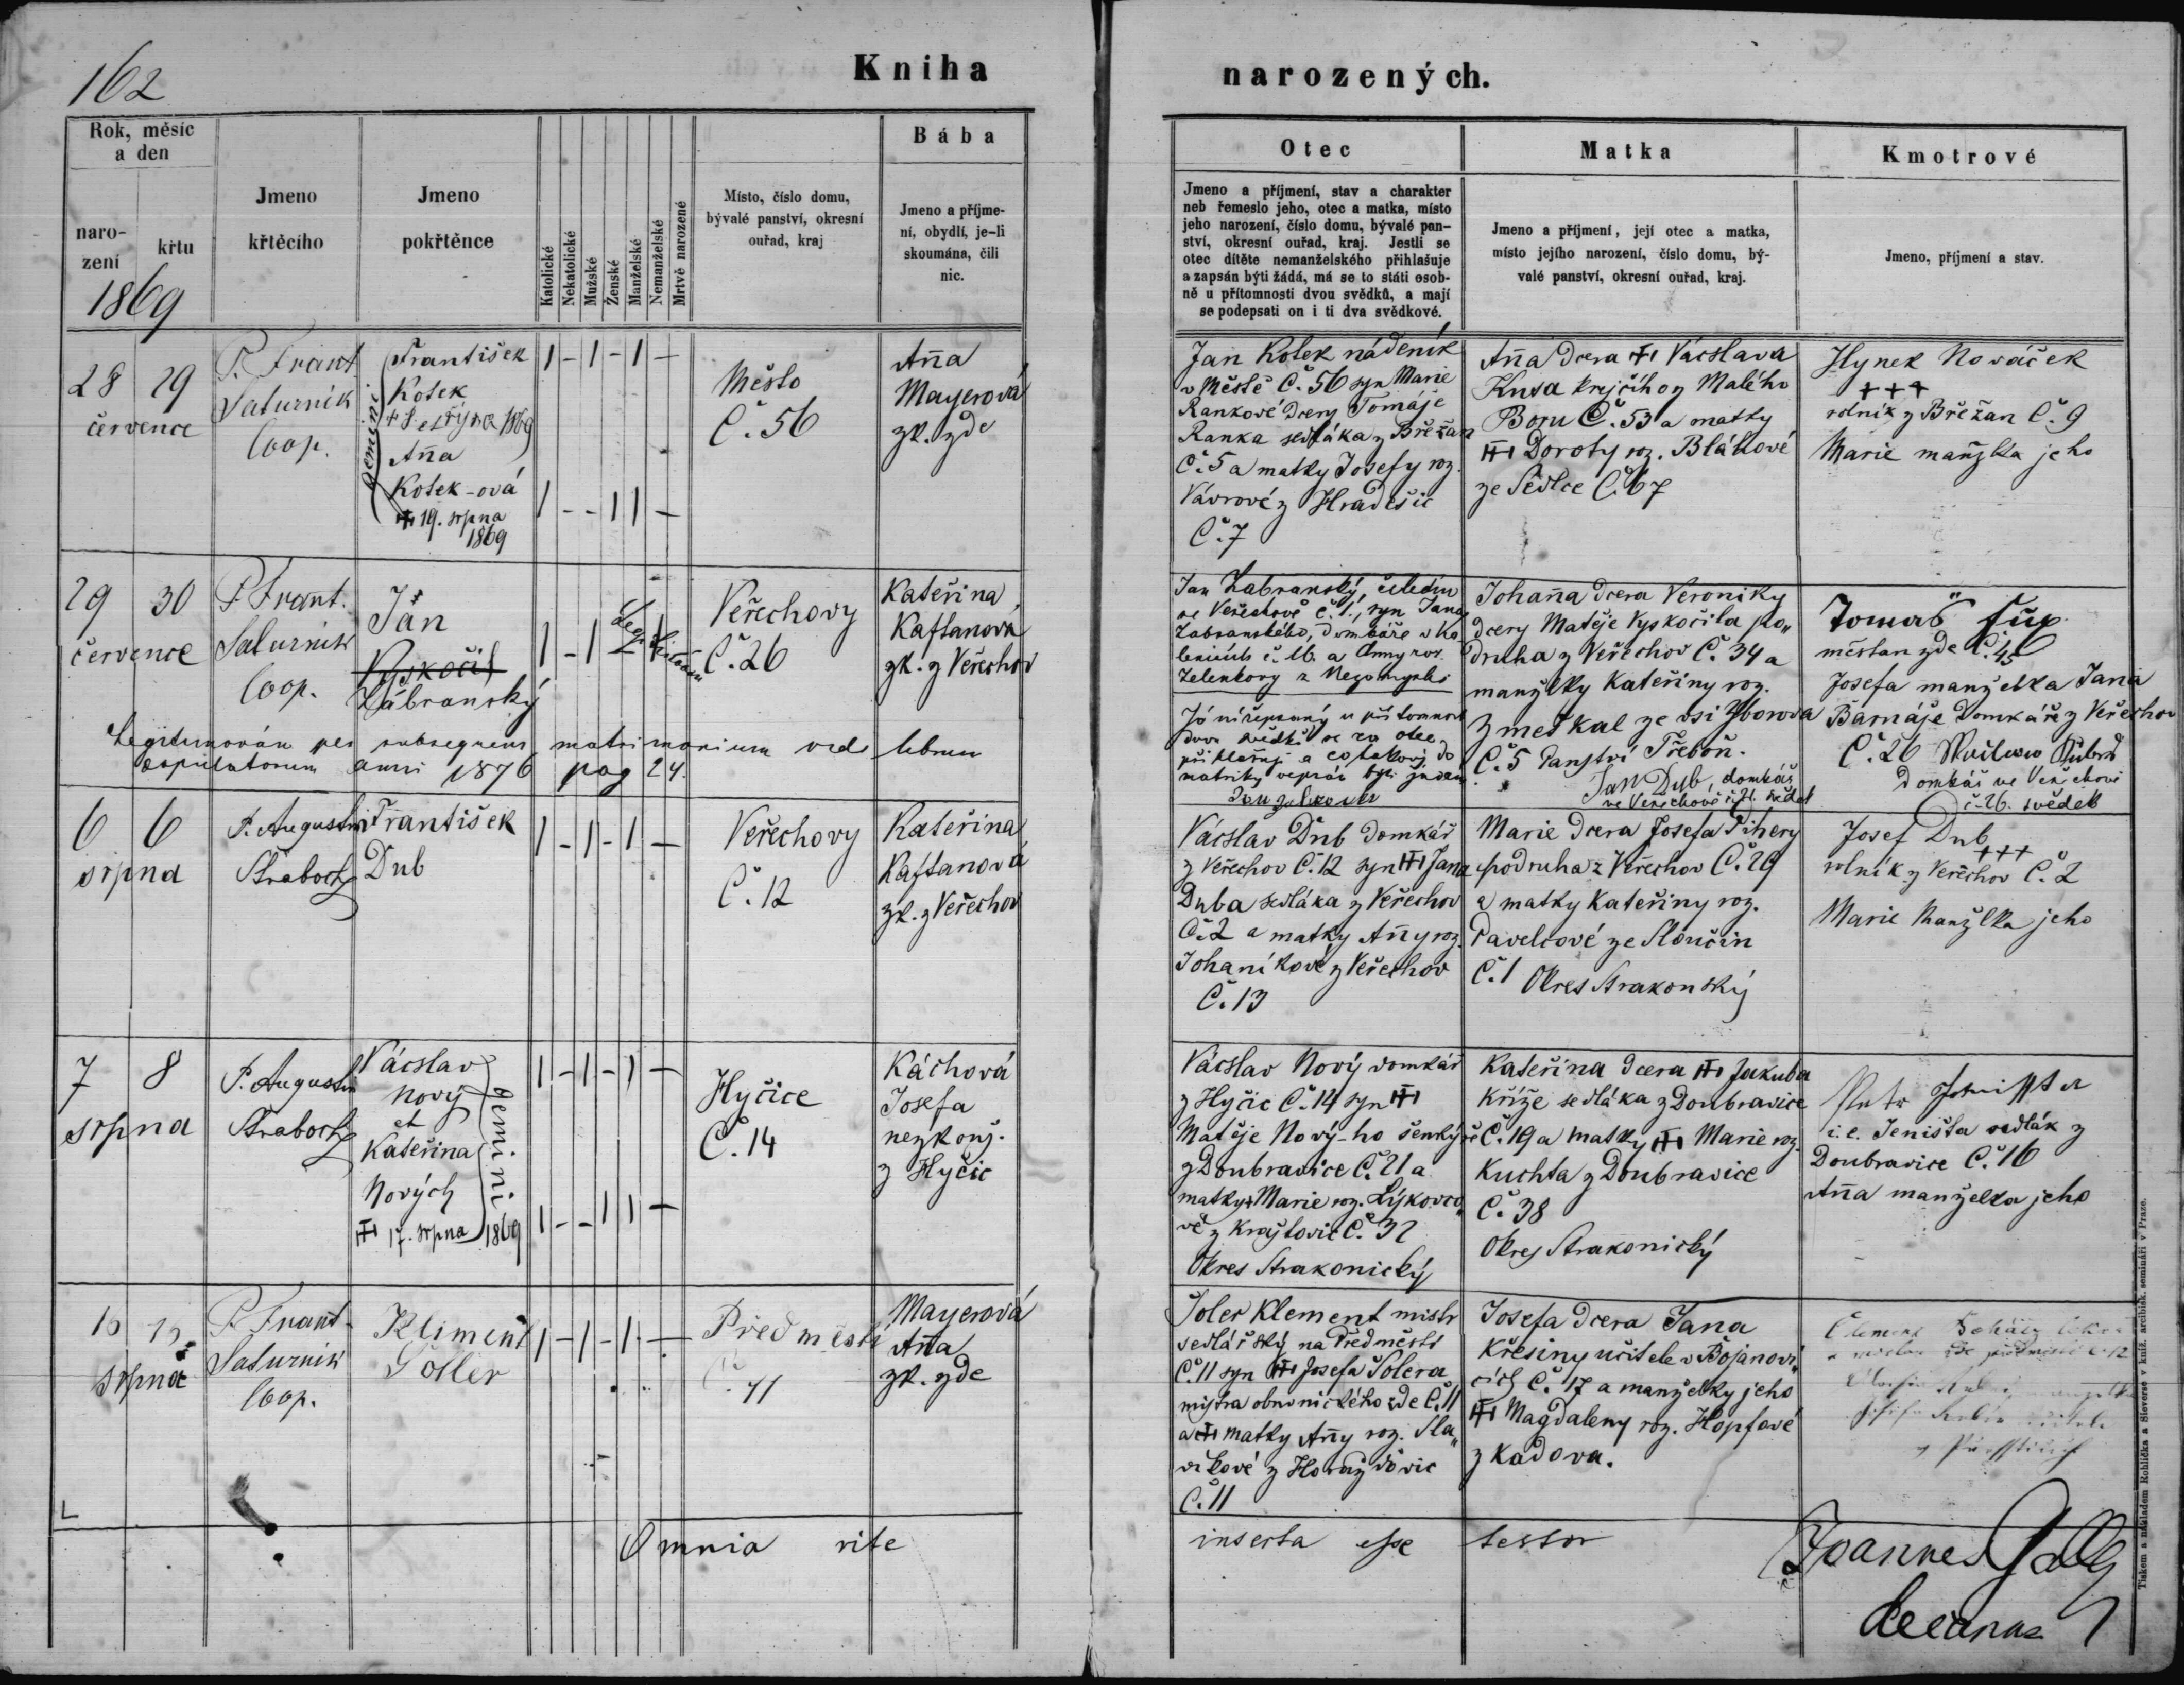 162
Kniha
narozených.
Rok, měsíc
a den
naro-
zení
křtu
1869
Jmeno
křtěcího
Jmeno
pokřtěnce
Katolické
Nekatolické
Mužské
Ženské
Manželské
Nemanželské
Mrtvě narozené
Místo, číslo domu,
bývalé panství, okresní
ouřad, kraj
Bába
Jmeno a příjme-
ní, obydlí, je-li
skoumána, čili
nic.
Otec
Jmeno a příjmení, stav a charakter
neb řemeslo jeho, otec a matka, místo
jeho narození, číslo domu, bývalé pan-
ství, okresní ouřad, kraj. Jestli se
otec dítěte nemanželského přihlašuje
a zapsán býti žádá, má se to státi osob-
ně u přítomnosti dvou svědků, a mají
se podepsati on i ti dva svědkové.
Matka
Jmeno a příjmení, její otec a matka,
místo jejího narození, číslo domu, bý-
valé panství, okresní ouřad, kraj.
Kmotrové
Jmeno, příjmení a stav.
28 29
července
P. Frant
Saturnik
Coop.
František
Kotek
1869
Anna
Kotek-ová
19. srpna
1869
gemini
Město
Č. 56
Anna
Mayerová
zk. zde
Jan Kotek nádeník
v Městě Č. 56 syn Marie
Rankové dcery Tomáše
Ranka sedláka z Břežan
Č. 5 a matky Josefy roz.
Vávrové z Hradešic
Č. 7
Anna dcera Václava
Kusa krejčího z Malého
Boru Č. 53 a matky
Doroty roz. Bláhové
ze Sedlce Č. 67
Hynek Nováček
+++
rolník z Břežan Č. 9
Marie manžlka jeho
29 30
července
P. Frant.
Saturnik
Coop.
Jan
Vyskočil
Zábranský
Veřechovy
Č. 26
Kateřina
Kaftanová
zk. z Veřechov
Legitimován per subsequens matrimonium vid librum
copulatorum anni 1876 pag 24.
Jan Zabranský, čeledín
ve Veřechově č. 1., syn Jana
Zabranského, domkáře v Ko
lenicích č. 16. a Anny roz.
Zelenkovy z
Já nížepsaný u přítomnosti
dvou svědků se za otce
přihlašuji a co takový do
matriky zapsán býti žádám
Johanna dcera Veroniky
dcery Matěje Vyskočila po„
druha z Veřechov Č. 34 a
manželky Kateřiny roz.
Zmeškal ze vsi Zborova
Č. 5 Panství Třeboň.
Jan Dub, domkář
ve Veřechově č. 21. svědek
Tomáš
měšťan zde Č. 45
Josefa manželka Jana
Barnáše domkáře z Veřechov
Č. 26
Domkář ve Veřechově
č. 26. svědek
6 6
srpna
P. Augustin
Strabochz
František
Dub
Veřechovy
Č. 12
Kateřina
Kaftanová
zk. z Veřechov
Václav Dub domkář
z Veřechov Č. 12 syn Jana
Duba sedláka z Veřechov
Č. 2 a matky Anny roz.
Johaníkové z Veřechov
Č. 13
Marie dcera Josefa Pihery
podruha z Veřechov Č. 29
a matky Kateřiny roz.
Pavelcové ze Slončin
Č. 1 Okres Strakonský
Josef Dub
+++
rolník z Veřechov Č. 2
Marie Manžlka jeho
7 8
srpna
P. Augustin
Strabochz
Václav
Nový
et
Kateřina
Nových
17. srpna 1869
gemini
Hyčice
Č. 14
Káchová
Josefa
nezkouš.
z Hyčic
Václav Nový domkář
z Hyčic Č. 14 syn
Matěje Nový-ho šenkýře
z Doubravice Č. 21 a
matky Marie roz. Lýkovco„
vé z Kraftovic Č. 32
Okres Strakonický
Kateřina dcera Jakuba
Kříže sedláka z Doubravice
Č. 19 a matky Marie roz.
Kuchta z Doubravice
Č. 38
Okres Strakonický
i. e. Jeništa sedlák z
Doubravice Č. 16
Anna manželka jeho
15 15
srpna
P. Frant
Saturnik
Coop.
Kliment
Soller
Předměstí
Č. 11
Mayerová
Anna
zk. zde
Šoler Klement mistr
sedlářský na Předměstí
Č. 11 syn Josefa Šolera
mistra obuvnického zde Č. 11
a matky Anny roz. Sla„
víkové z Horažďovic
Č. 11
Josefa dcera Jana
Křesiny učitele v Bojanovi„
cích Č. 17 a manželky jeho
Magdaleny roz. Hopfové
z Kadova.
Omnia rite
inserta esse testor
Joannes
decanus
Tiskem a nákladem Rohlíčka a Sieverse v kníž. arcibisk. semináři v Praze.